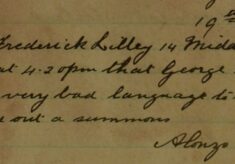 19
Frederick Lilley 14 Midd
at 4.20pm that George
very bad language to
out a summons
Alonzo